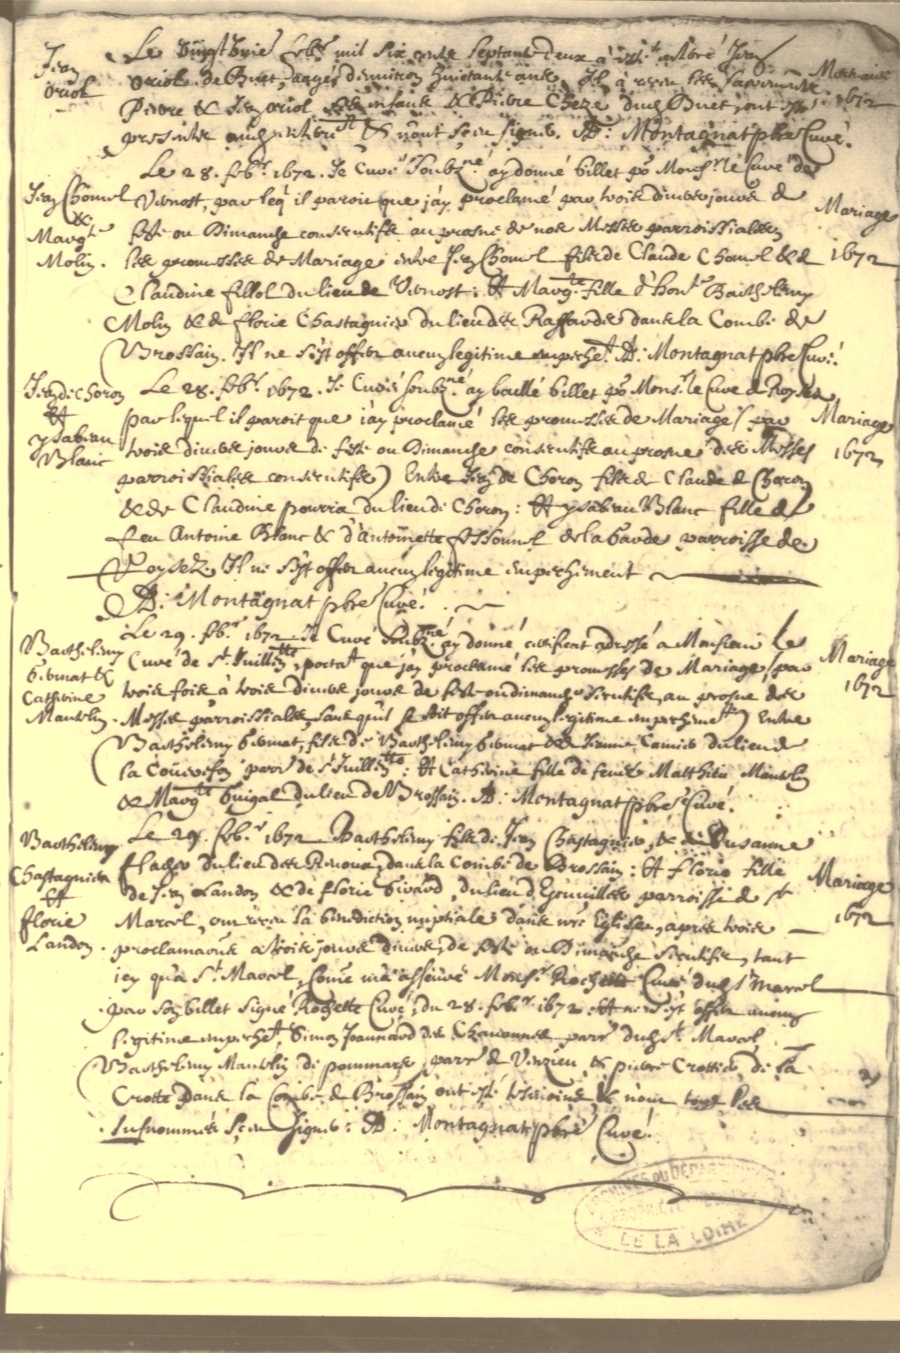 Jean
Oriol
Le vingt huie febr. mil six cents septante deux a esté enterré Jean
Oriol de Buet, aagé d'environ huictante ans. Il a receu les sacrements.
Mortuaire
1672
Pierre & Jean Oriol ses enfans & Pierre Cheze dud. Buet, ont esté
presents aud. enterremt. & n'ont sceu signer. A: Montagnat pbre Curé.
Le 28. febr. 1672. Je Curé soubz.né ay donné billet po Mons.r le Curé de
Jean Chomel
&
Marg.te
Molin.
Vernost, par leq. il paroit que j'ay proclamé par trois divers jours de
feste ou Dimanche consecutifs au prosne de nos Messes parroissialles
les promesses de Mariage entre Jean Chomel fils de Claude Chomel & de
Mariage
1672
Claudine fillol du lieu de Vernost: Et Marg.te fille d'hon.te Barthelemy
Molin & de florie Chastagnier du lieu des Raffardes dans la Combe de
Brossain. Il ne s'est offer aucun legitime empeche.t A: Montagnat pbre Curé.
Jean de Choron
Et
ysabeau
Blanc
Le 28. febr. 1672. Je Curé soubz.né ay baillé billet po Mons.r le Curé de Roysés
par lequel il paroit que j'ay proclamé les promesses de Mariage (par
trois divers jours de feste ou Dimanche consecutifs au prosne des Messes
Mariage
1672
parroissialles consecutifs) Entre Jean de Choron fils de Claude de Choron
& de Claudine pourra du lieu de Choron: Et ysabeau Blanc fille de
feu Antoine Blanc & d'Antoinette fossonnel de la Garde parroisse de
Roysez. Il ne s'est offer aucun legitime empechement
A: Montagnat pbre Curé.
Barthelemy
Germat &
Catherine
Mantelin.
Le 29. febr. 1672 Je Curé soubz.né ay donné certificat adressé a Monsieur le
Curé de St. Jullien, porta.t que j'ay proclamé les promesses de Mariage, par
trois fois à trois divers jours de feste ou dimanche consecutifs, au prosne des
Messes parroissialles, sans qu'il se soit offer aucun legitime empecheme.t) Entre
Mariage
1672
Barthelemy Germat, fils de Barthelemy Germat & de Jeanne Camier du lieu de
la Parr de St. Jullien: Et Catherine fille de feu Matthieu Mantelin
& Marg.te Guigal du lieu de Brossain. A: Montagnat pbre Curé.
Barthelemy
Chastagnier
Et
florie
Landon.
Le 29. febr. 1672 Barthelemy fils de Jean Chastagnier, & de Susanne
flacher du lieu des Renoux, dans la Combe de Brossain: Et florie fille
de Jean Landon & de florie Givard, du lieu d'Egouilles parroisse de St
Marcel, ont receu la benediction nuptiale dans nre Eglise, apres trois
Mariage
1672
proclamaons a trois jours divers, de feste ou Dimanche consecutifs, tant
icy qu'à St. Marcel, come m'a asseuré Mons.r Rochette Curé dud. St Marcel
par son billet signé Rochette Curé, du 28. febr. 1672. Et ne s'est offer aucun
legitime empeche.t Simon Joannard de Chavannes parr dud. St. Marcel
Barthelemy Mantelin de pommare, parr de Vinzieu, & pierre Crottier de la
Crotte dans la Combe de Brossain ont esté tesmoins & n'ont tous les
susnommés sceu signer: A: Montagnat pbre Curé.
ARCHIVES DU DEPARTEMENT
PROPRIETE
DE LA LOIRE